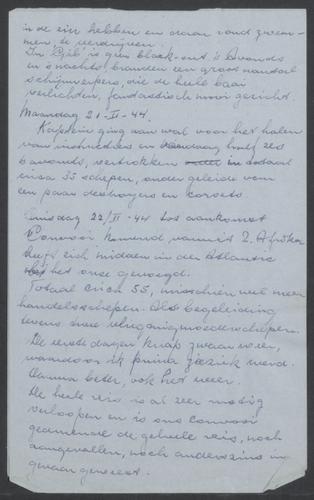 in de zin hebben en daar rond zwem-
men, te verdrijven.
In Gib. is geen black-out 's avonds
en 's nachts branden een groot aantal
schijnwerpers, die de heele baai
verlichten, fantastisch mooi gezicht.
Maandag 21-II-44.
Kapitein ging aan wal voor het halen
van instructies en vandaag half zes
'savonds, vertrokken in totaal
circa 35 schepen, onder geleide van
een paar destroyers en corvets
Dinsdag 22/II-44 tot aankomst
Convooi komend vanuit Z. Afrika
heeft zich midden in den Atlantic
bij het onze gevoegd.
Totaal circa 55, misschien wel meer
handelsschepen. Als begeleiding
tevens twee vliegtuigmoederschepen.
De eerste dagen knap zwaar weer,
waardoor ik prima zeeziek werd.
Daarna beter, ook het weer.
De heele reis is al zeer rustig
verloopen en is ons convooi
gedurende de geheele reis, noch
aangevallen, noch anderszins in
gevaar geweest.